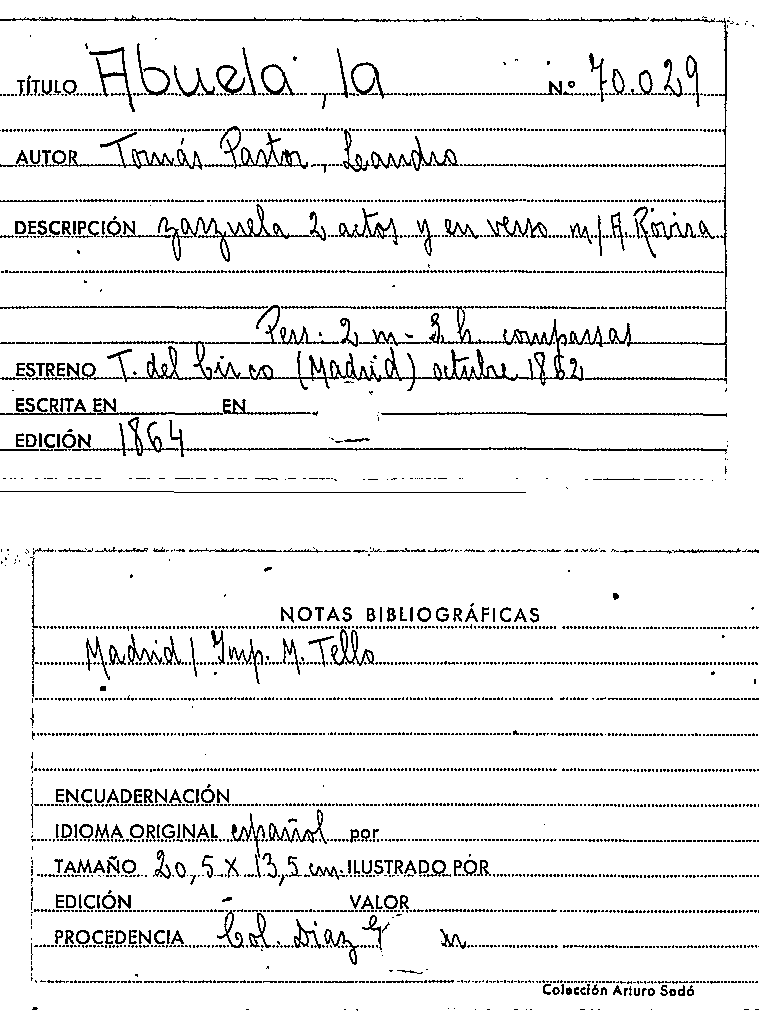 TÍTULO Abuela, la Nº 70.029
AUTOR Tomás Pastor, Leandro
DESCRIPCIÓN zarzuela 2 actos y en verso m/ A. Rovira
Pers: 2 m - 3 h. comparsas
ESTRENO T. del Circo (Madrid) octubre 1862
ESCRITA EN EN
EDICIÓN 1864 —
NOTAS BIBLIOGRÁFICAS
Madrid / Imp. M. Tello
ENCUADERNACIÓN
IDIOMA ORIGINAL español por
TAMAÑO 20,5 X 13,5 cm ILUSTRADO POR
EDICIÓN - VALOR
PROCEDENCIA Col. Diaz
Colección Arturo Sedó